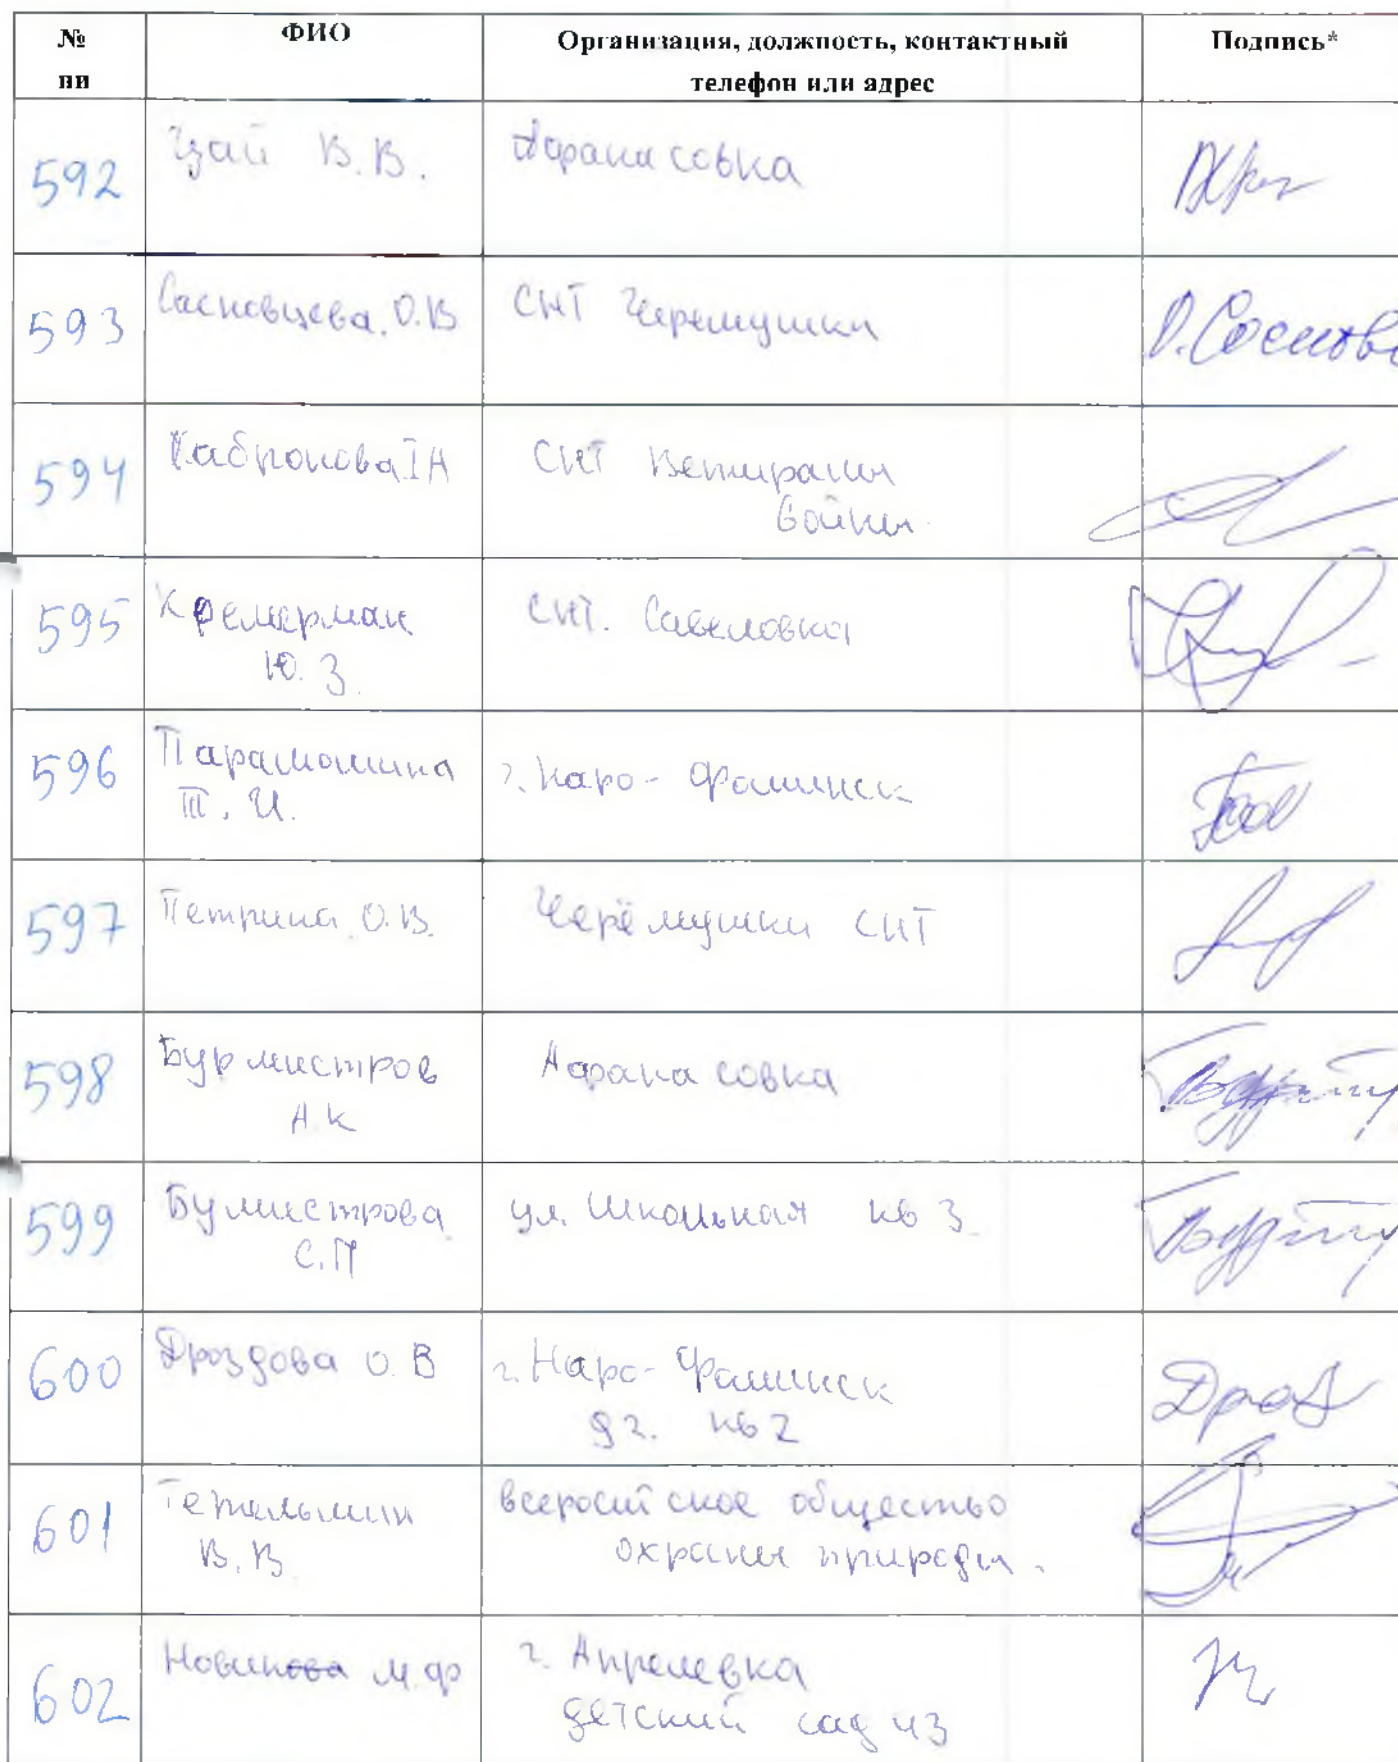 №
пп
ФИО
Организация, должность, контактный
телефон или адрес
Подпись*
592
Цай В.В.
Афанасовка
593
Сасновцева О.В
СНТ Черемушки
О. Соснове
594
СНТ Ветираны
войны
595
Кремерман
Ю. З.
СНТ. Савеловка
596
Парамошина
Т. И.
г. Наро-Фоминск
597
Петрина О.В.
Черёмушки СНТ
598
Бурмистров
А.К
Афанасовка
599
Бумистрова
С.П
ул. Школьная кв 3
600
Дроздова О.В
г. Наро-Фоминск
д 2. кв 2
601
В.В.
всеросийское общество
охраны природы.
602
М.Ф
г. Апрелевка
детский сад 43